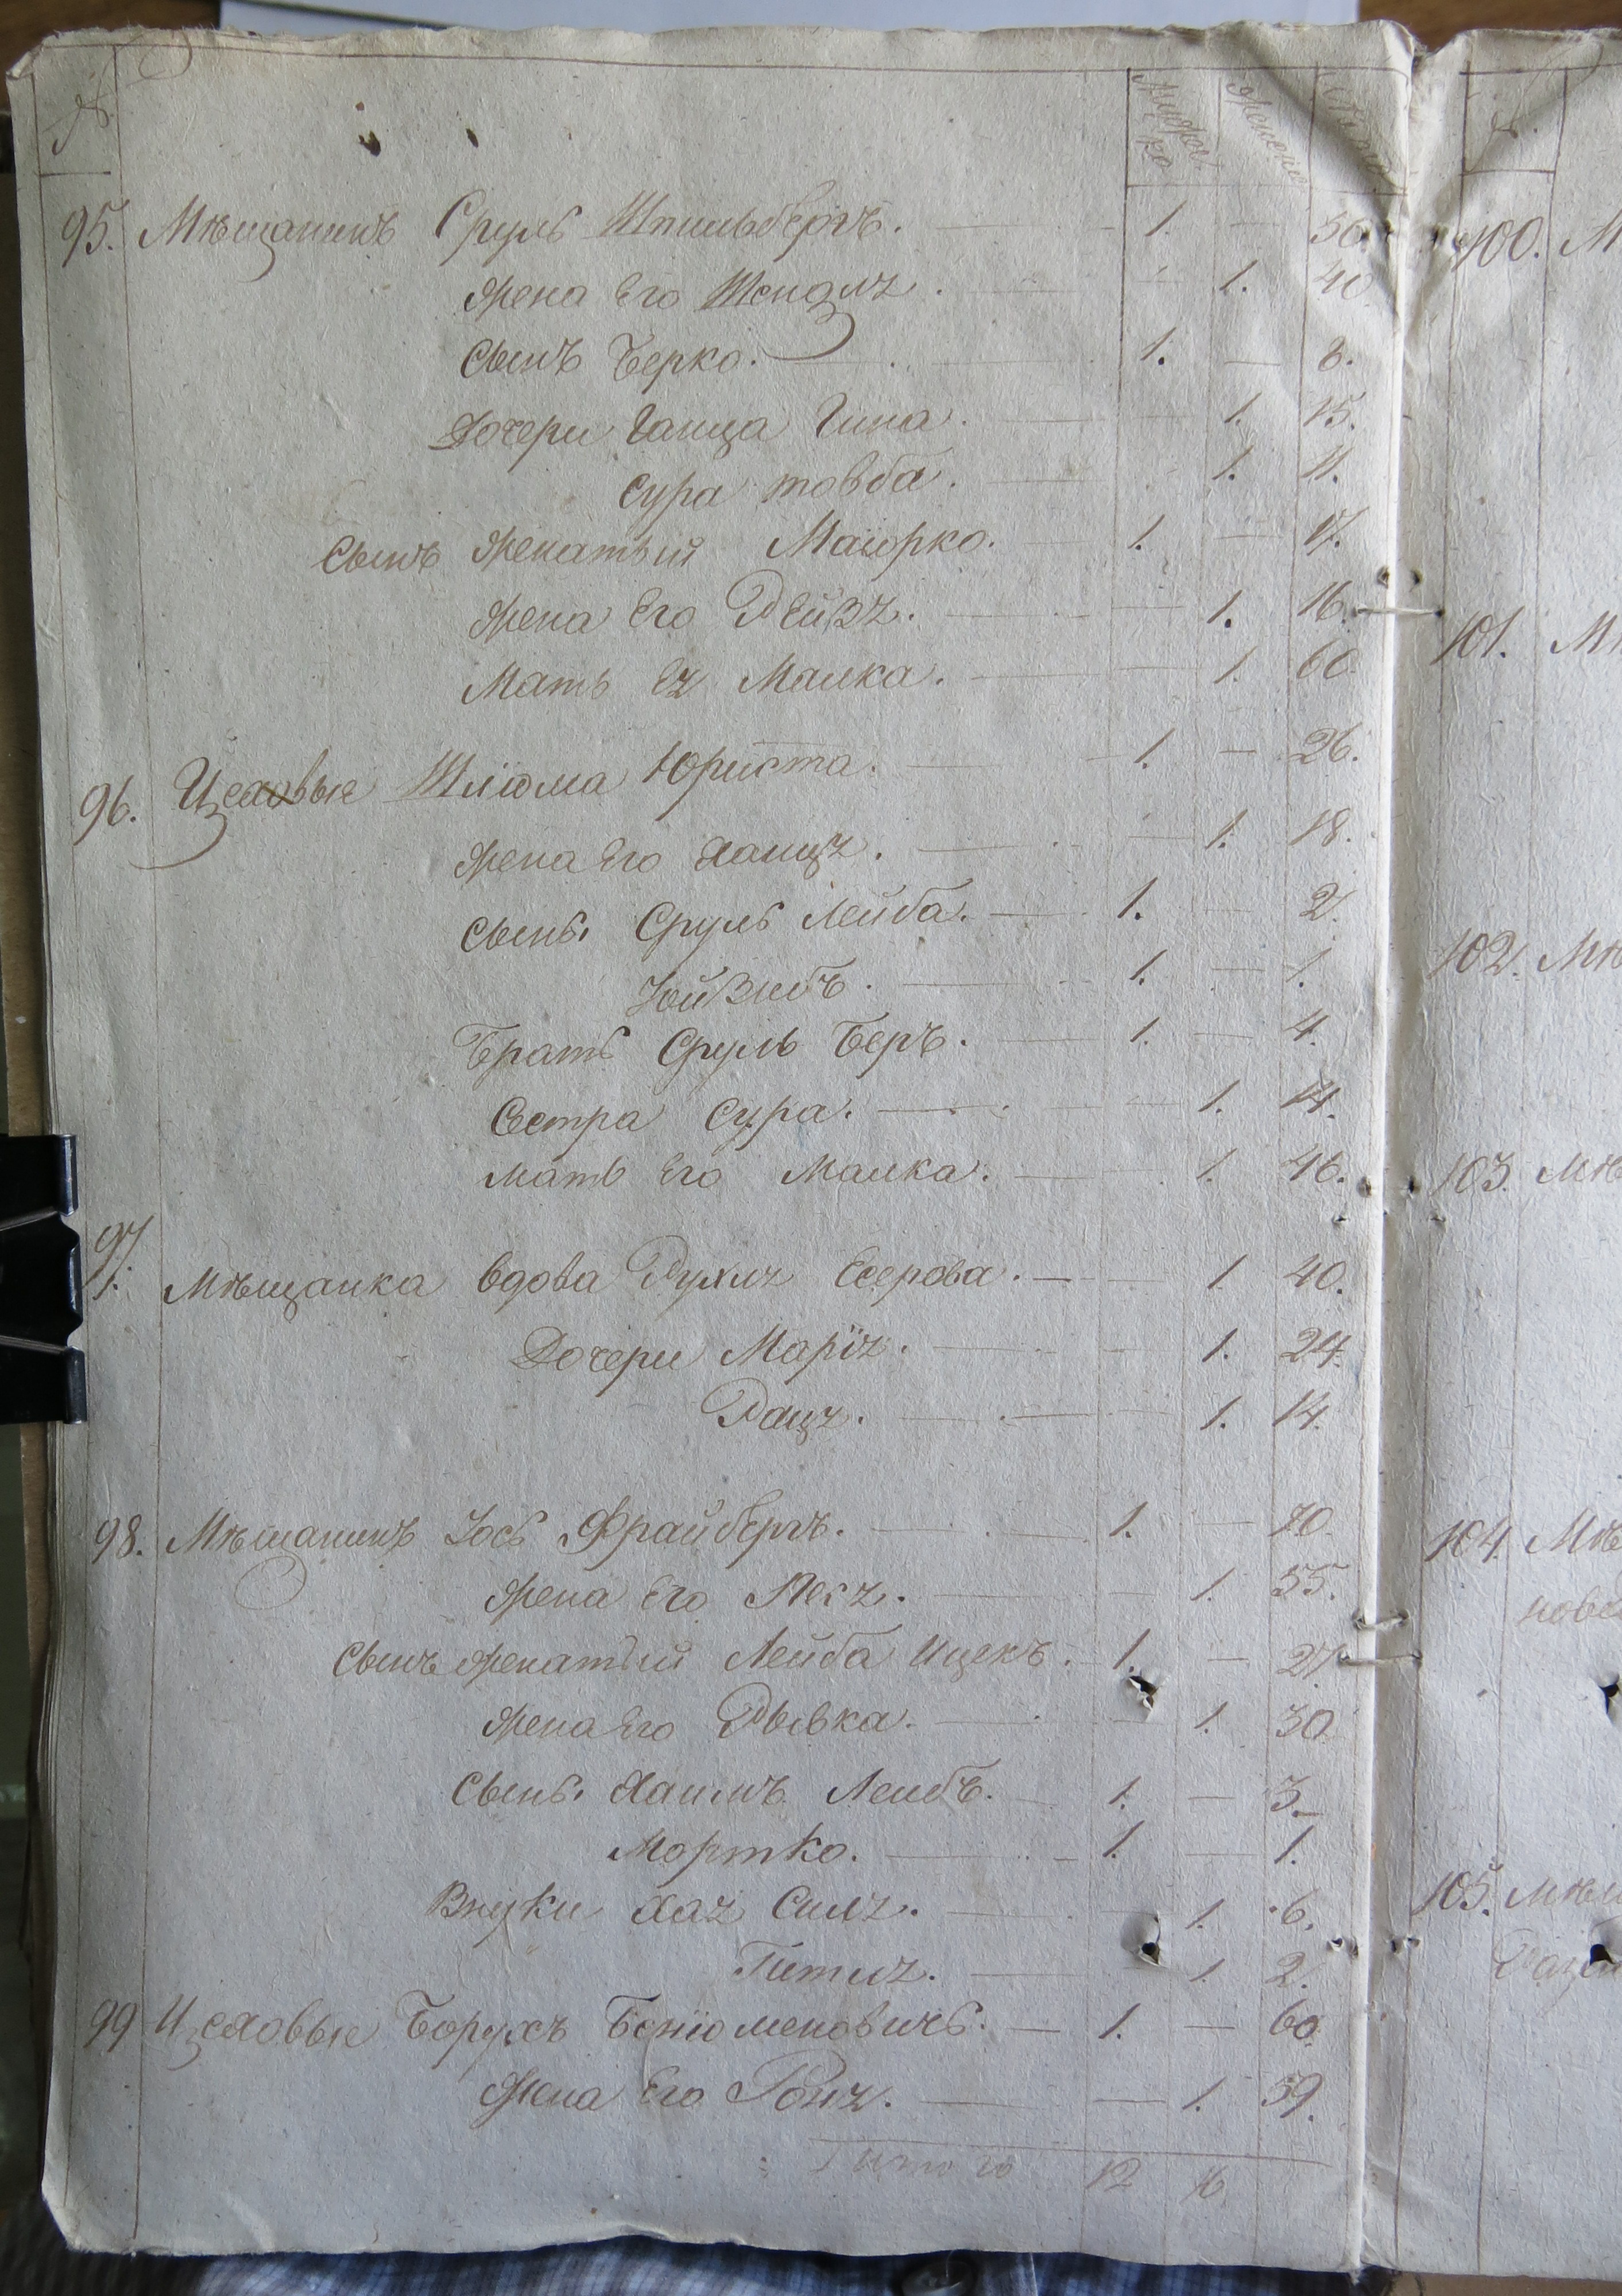 № Мужеско Женско Лѣта
95. Мѣщанинъ Сруль Шпильбергъ. — 1. — 50.
жена Его Шендля. — 1. 40
Сынъ Берко. — 1. — 8.
Дочери Ганца Гина. — 1. 15.
Сура товба. — 1. 11.
Сынъ женатый Маіорко. — 1. — 17.
жена Его Рейзя. — 1. 16.
Мать Ея Малка. — 1. 60.
96. Цеховые Шліома Юриста. — 1. — 26.
жена Его Ханця. — 1. 18.
Сынъ. Сруль Лейба. — 1. — 2.
Зойвибъ. — 1. — 1.
Братъ Сруль Беръ. — 1. — 4.
Сестра Сура. — 1. 14.
мать Его Малка. — 1. 46.
97
1. Мѣщанка вдова Рухля Есерова. — 1 40.
Дочери Марія. — 1. 24.
Раця. — 1. 14.
98. Мѣщанинъ Іось Фрайбергъ. — 1. — 70.
жена Его Песя. — 1. 55.
Сынъ женатый Лейба Ицекъ. — 1. — 27.
жена Его Рывка. — 1. 30
Сынъ. Хаимъ Леибъ. — 1. — 3.
Мортко. — 1. — 1.
Внуки Хая Сися. — 1. 6.
Гитля. — 1. 2.
99 Цеховые Борухъ Беніоменовичъ. — 1. — 60.
жена Его Роня. — 1. 59.
Итого 12 16
100. М
101. М
102. Мѣ
103. Мѣ
104. Мѣ
нова
105. мѣщ